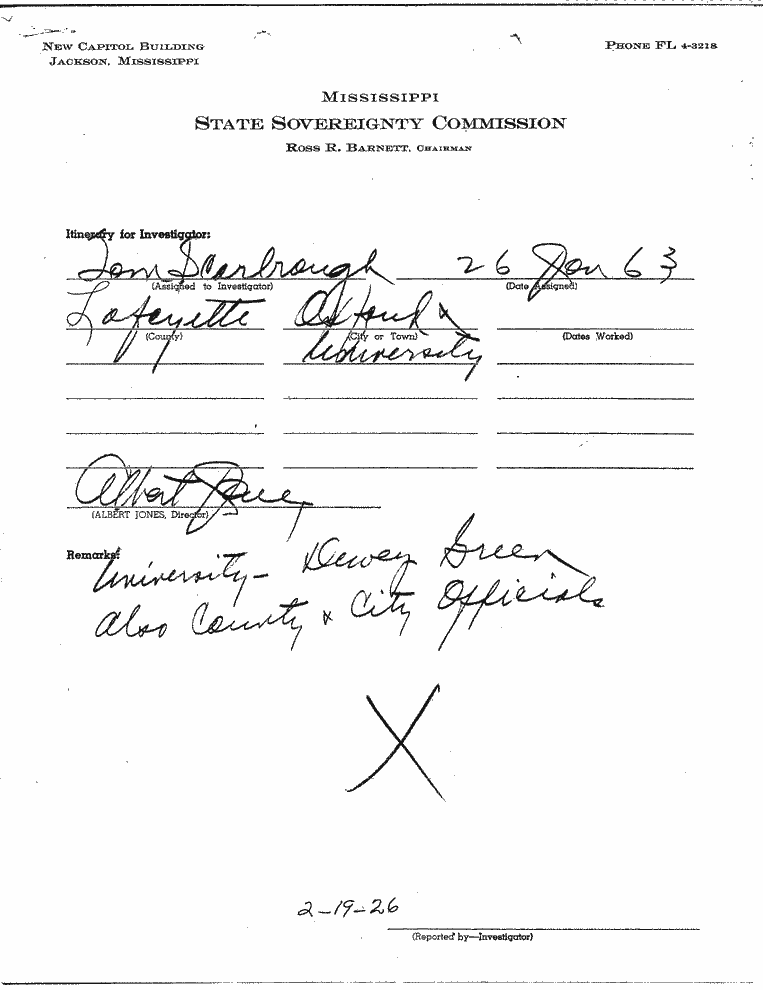 NEW CAPITOL BUILDING
JACKSON, MISSISSIPPI
PHONE FL 4-3218
MISSISSIPPI
STATE SOVEREIGNTY COMMISSION
ROSS R. BARNETT, CHAIRMAN
Itinerary for Investigator:
Tom Scarbrough 26 Jan 63
(Assigned to Investigator) (Date Assigned)
Lafayette Oxford &
(County) (City or Town) (Dates Worked)
University
Albert Jones
(ALBERT JONES, Director)
Remarks:
University - Dewey Green
also County & City Officials
X
2-19-26
(Reported by—Investigator)